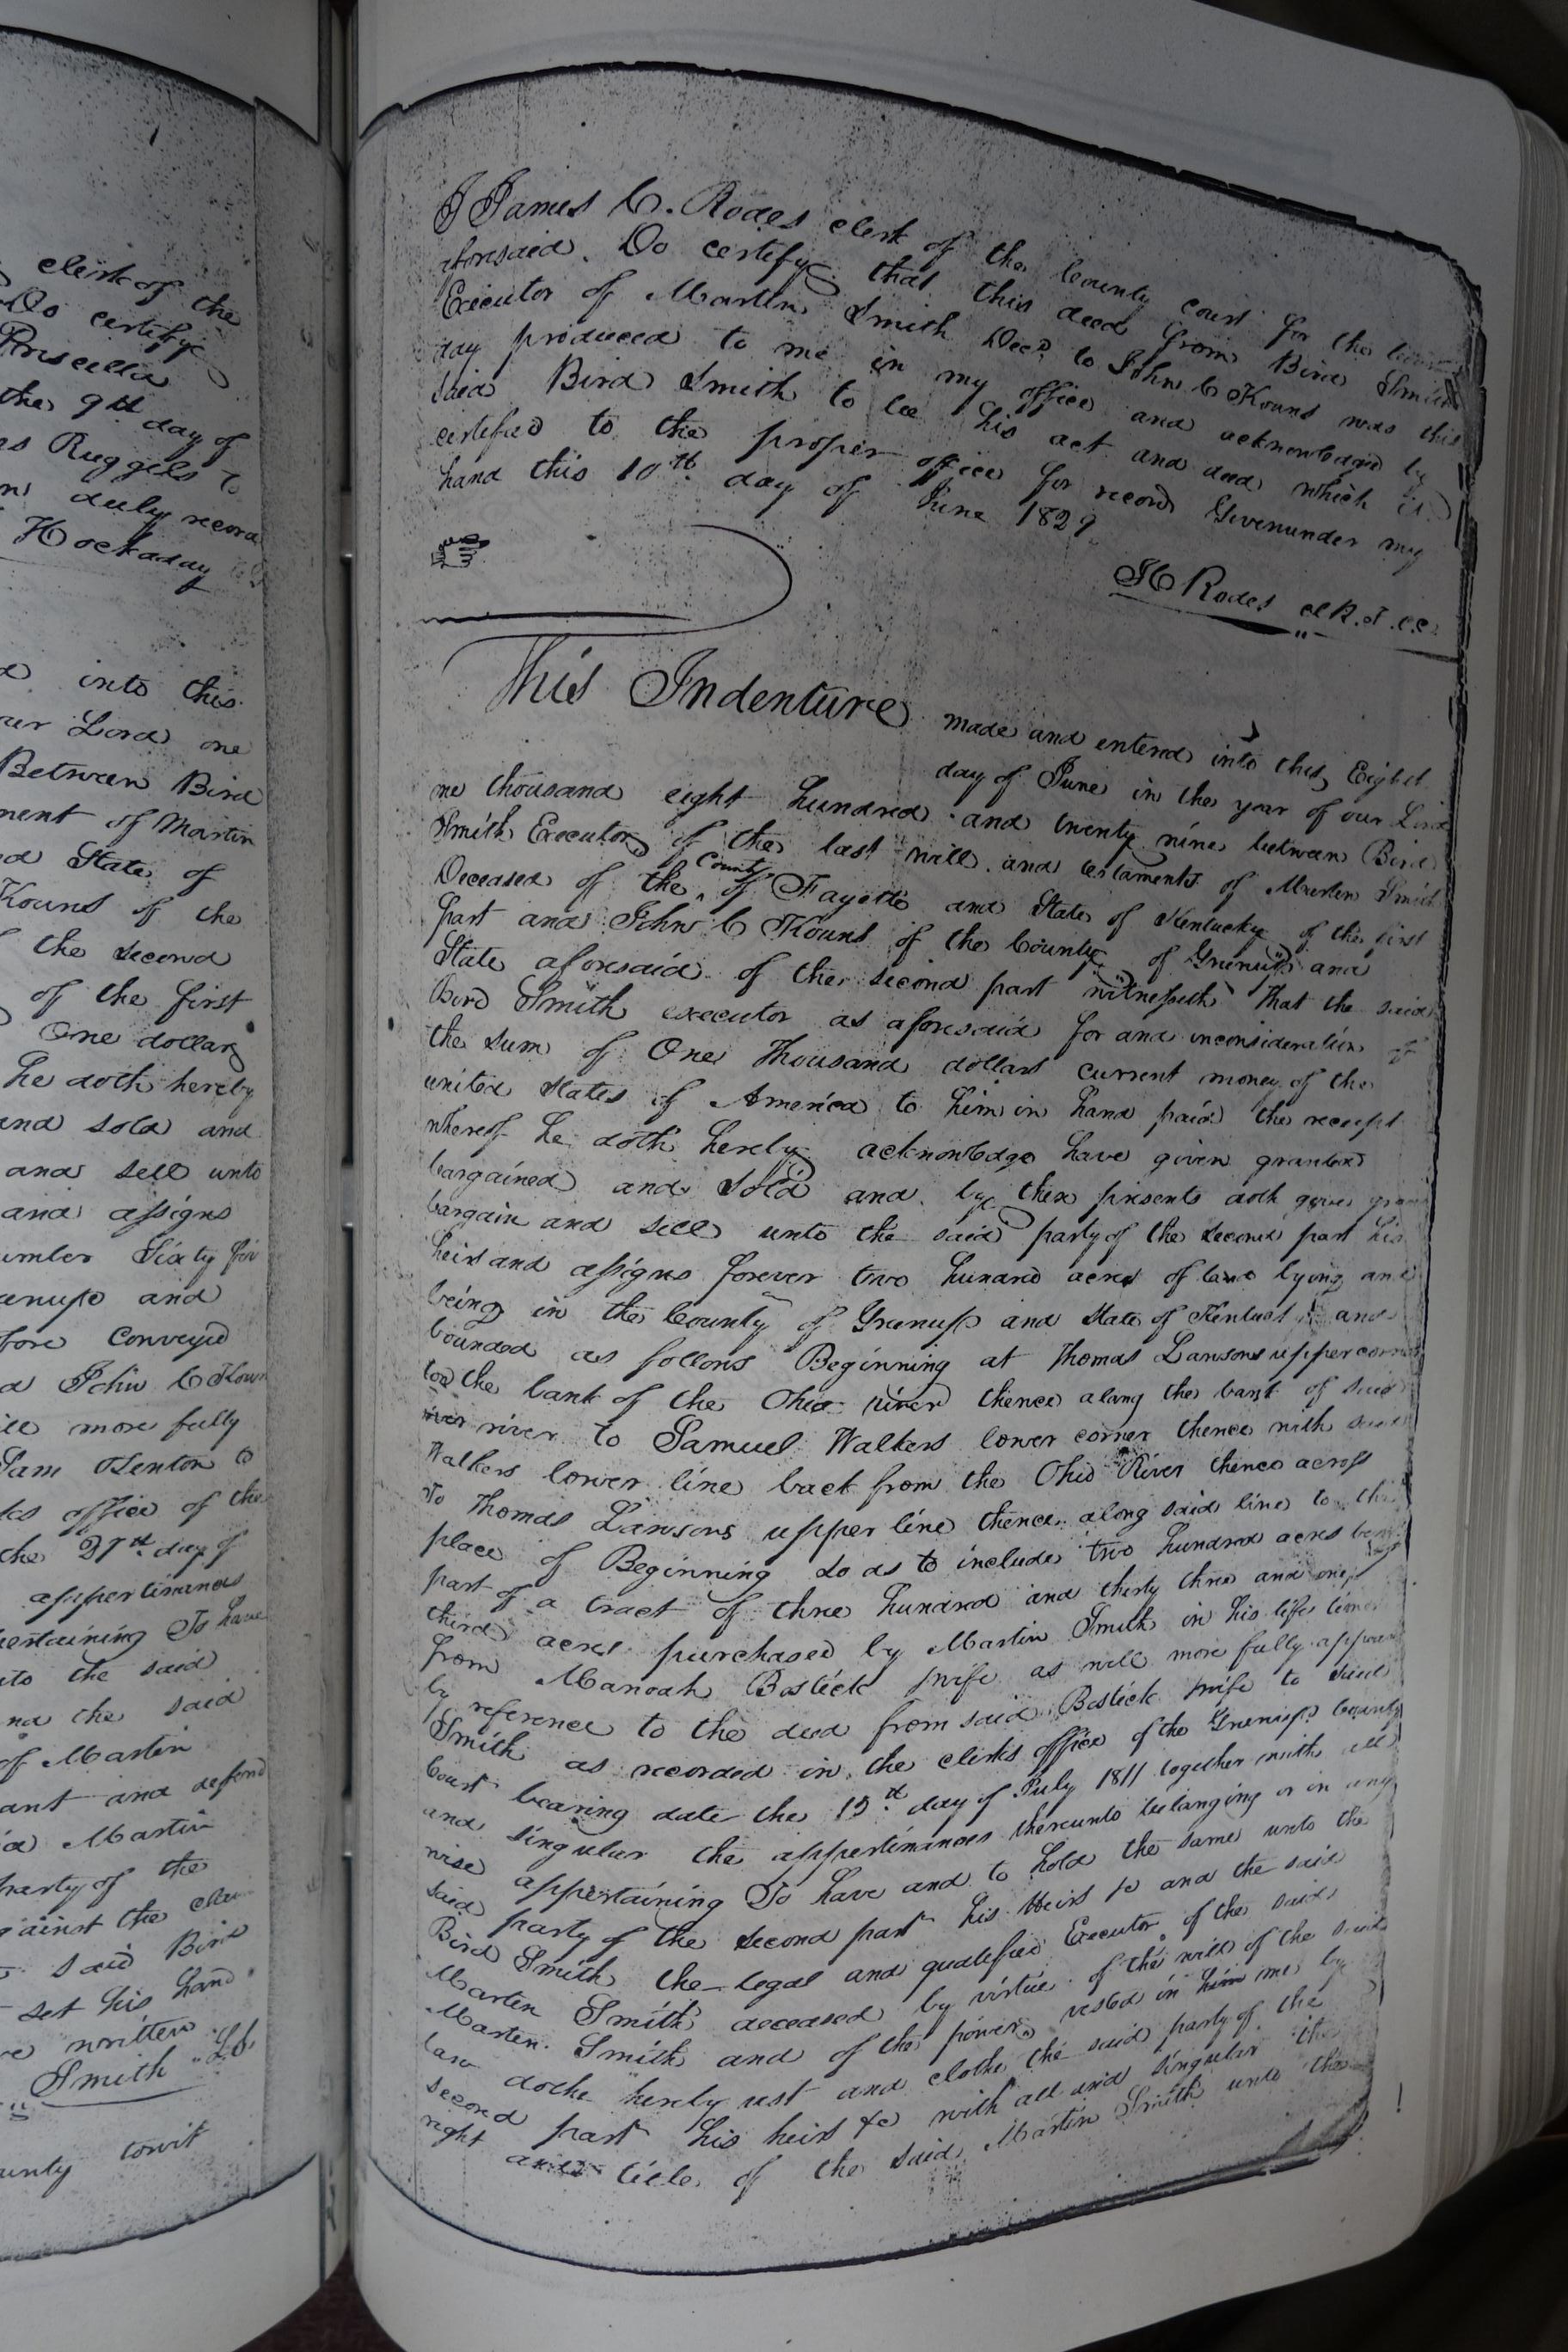 clerk of the
Do certify
Priscilla
the 9th day of
as Ruggels to
duly record
Hockaday
into this
our Lord one
Between Bird
ment of Martin
State of
Kouns of the
the second
of the first
One dollar
he doth hereby
and sold and
and sell unto
and assigns
Sixty
and
fore Conveyed
John C Kouns
more fully
office of the
the 27th day of
appertinances
To have
to the said
and the said
of Martin
ant and defend
Martin
party of the
against the
said Bird
set his hand
written
Smith
towit
I James C. Rodes clerk of the County court for the
aforesaid. Do certify that this deed from Bird Smith
Executor of Marten Smith Decd. to John C Kouns was this
day produced to me in my office and acknowledged by
said Bird Smith to be his act and deed which is
certefied to the proper office for record Givenunder my
hand this 10th day of June 1829
JC Rodes
This Indenture made and entered into this Eight
day of June in the year of our Lord
one thousand eight hundred and twenty nine between Bird
Smith Executor of the last will and testament of Marten Smith
Deceased of the County of Fayette and State of Kentucky of the first
part and John C Kouns of the County of Greenup and
State aforesaid of the second part witnesseth That the said
Bird Smith executor as aforesaid for and inconsideration of
the sum of One Thousand dollars current money of the
united States of America to him in hand paid the receipt
whereof he doth hereby acknowledge have given granted
bargained and sold and by these presents doth give grant
bargain and sell unto the said party of the second part his
heirs and assigns forever two hundred acres of land lying and
being in the County of Greenup and State of Kentucky and
bounded as follows Beginning at Thomas Lawsons upper corner
the bank of the Ohio river thence along the bank of said
river to Samuel Walkers lower corner thence with said
Walkers lower line back from the Ohio River thence across
to Thomas Lawsons upper line thence along said line to the
place of Beginning so as to include two hundred acres being
part of a tract of three hundred and thirty three and one
third acres purchased by Martin Smith in his life time
from Manoah Bostick & wife as will more fully appear
by reference to the deed from said Bostick & wife to said
Smith as recorded in the clerks office of the Greenup County
Court bearing date the 15th day of July 1811 together with all
and singular the appertinances thereunto belonging or in any
wise appertaining To have and to hold the same unto the
said party of the second part his Heirs &c and the said
Bird Smith the legal and qualified Executor of the said
Marten Smith deceased by virtue of the will of the said
Marten Smith and of the power vested in him me by
law dothe hereby vest and clothe the said party of the
second part his heirs &c with all and singular the
right title of the said Martin Smith unto the